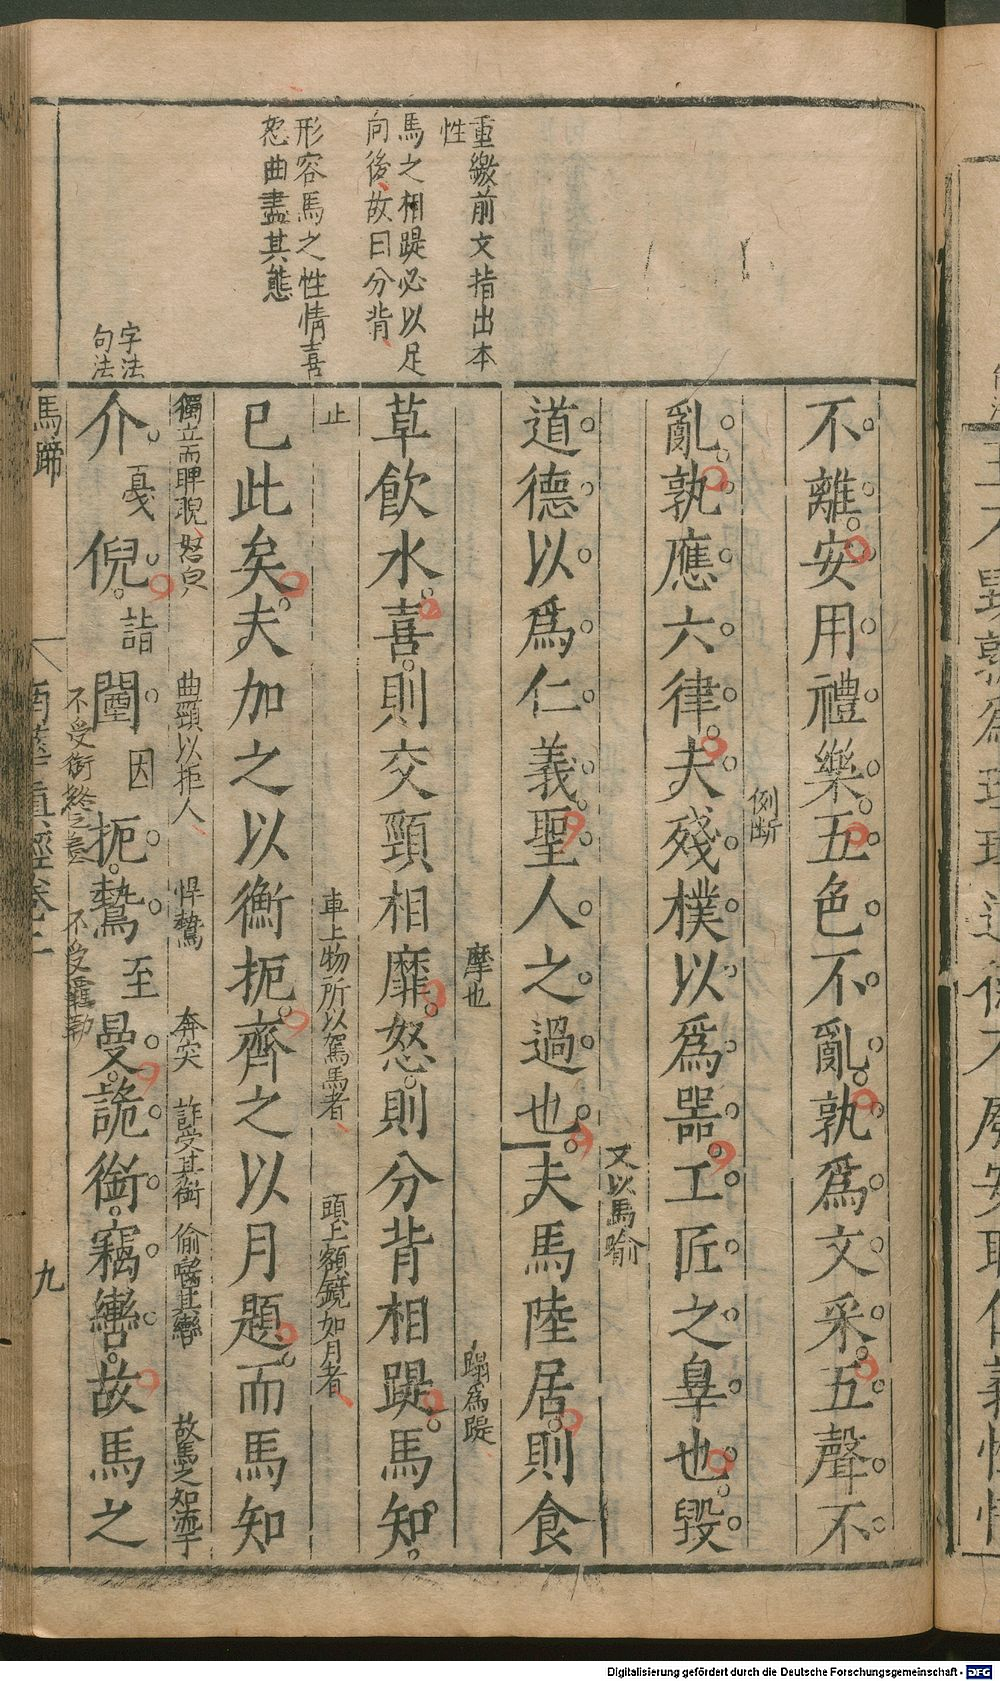 重繳前文指出本
性
馬之相踶必以足
向後故曰分背
形容馬之性情喜
怒曲盡其態
字法
句法
不離安用禮樂五色不亂孰爲文采五聲不
例斷
亂孰應六律夫殘樸以爲器工匠之辠也毀
又以馬喻
道德以爲仁義聖人之過也夫馬陸居則食
摩也
蹋爲踶
草飲水喜則交頸相靡怒則分背相踶馬知
止
車上物所以駕馬者
頭上額鏡如月者
已此矣夫加之以衡扼齊之以月題而馬知
獨立而睥睨怒皃
曲頸以拒人
悍鷙
奔突
詐受其銜
偷齧其轡
故馬之知
介憂倪詣闉因扼鷙至曼詭銜竊轡故馬之
不受銜
不受羈勒
馬蹄
南華真經卷
九
Digitalisierung gefördert durch die Deutsche Forschungsgemeinschaft - DFG